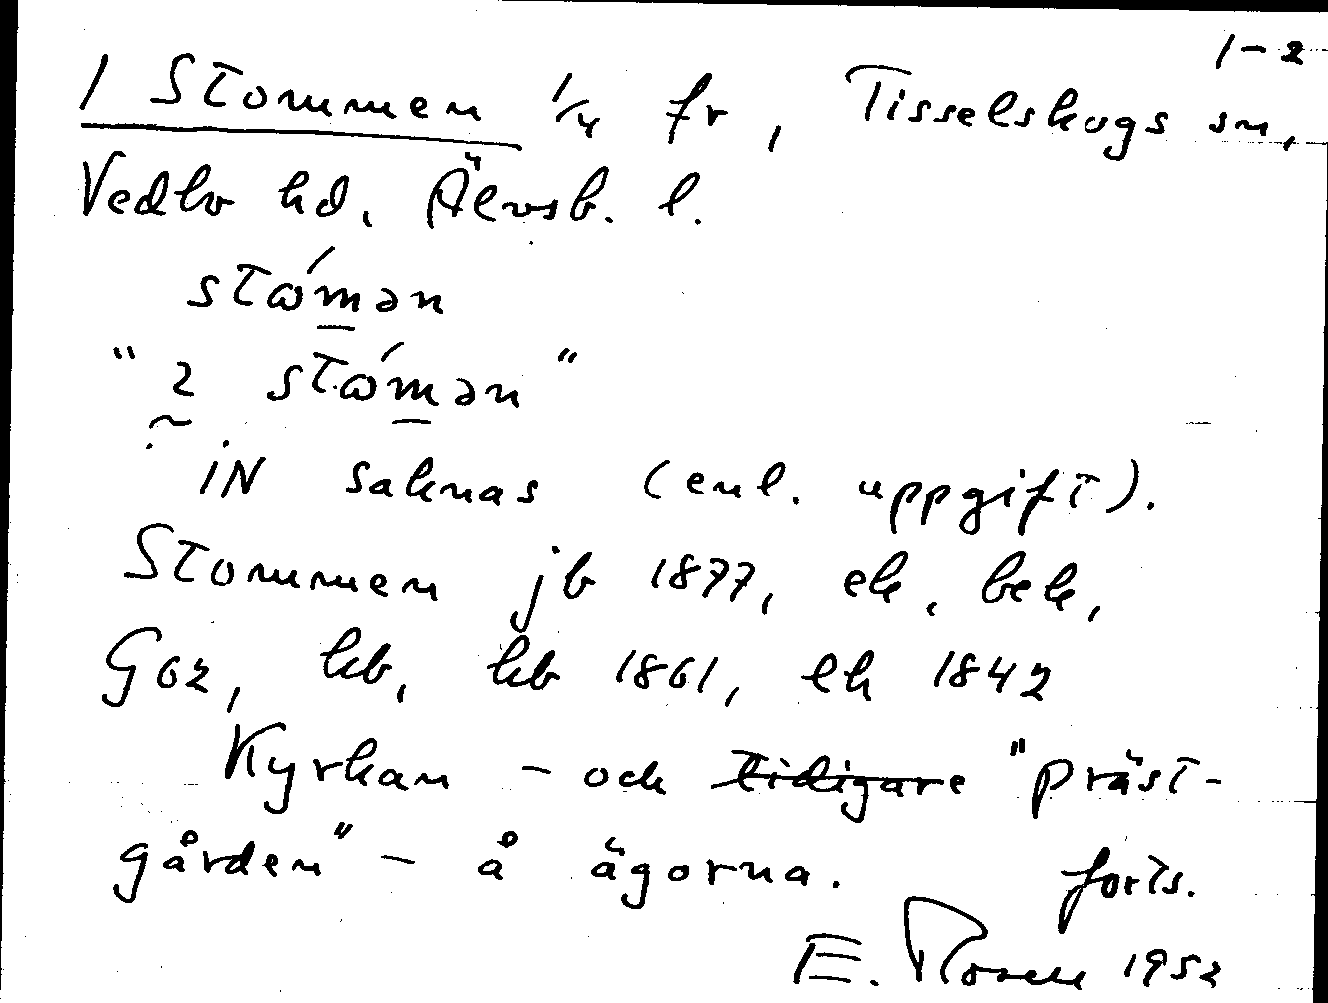 1-2
1 Stommen 1/4 fr, Tisselskogs sn,
Vedbo hd, Älvsb. l.
stω´mən
"2 stω´mən"
iN saknas (enl. uppgift).
Stommen jb 1877, ek, bek,
G02, kb, kb 1861, ek 1842
Kyrkan - och tidigare "präst-
gården" - å ägorna. forts.
E. Rosell 1952